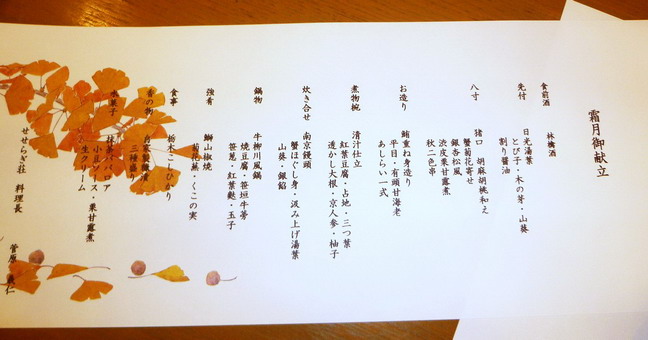 霜月御献立
食前酒
林檎酒
先付
日光湯葉
とび子・木の芽・山葵
割り醤油
八寸
猪口 胡麻胡桃和え
蟹菊花寄せ
銀杏松風
渋皮栗甘露煮
秋二色串
お造り
鮪重ね身造り
平目・有頭甘海老
あしらい一式
煮物椀
清汁仕立
紅葉豆腐・占地・三つ葉
透かし大根・京人参・柚子
炊き合せ
南京饅頭
蟹ほぐし身・汲み上げ湯葉
山葵・銀餡
鍋物
牛柳川風鍋
焼豆腐・笹垣牛蒡
笹葱・紅葉麩・玉子
強肴
鰤山椒焼
菊花蕪・くこの実
食事
栃木こしひかり
香の物
自家製糠漬
三種盛り
水菓子
抹茶ババロア
小豆ソース・栗甘露煮
生クリーム
せせらぎ荘 料理長
菅原 仁